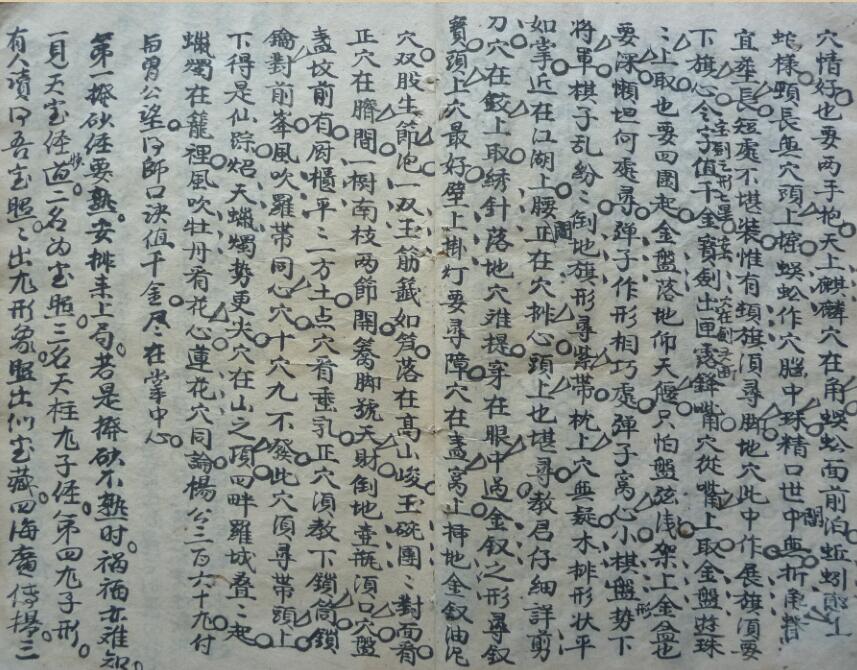 穴情好也要两手抱天上麒麟穴在角蜈蚣面前泊蚯蚓
蛇様顆長與穴頭上擦蜈蚣作穴脳中珠精口世中無折
宜华長短處不堪装惟有頓旗湏尋脚地穴此中作展旗湏要
下旗心令字值千金寳劍出匣露鋒嘴穴從嘴上取金盤遊珠
ミ上取也要四圍起金盤落地仰天偃只怕盤弦浅架上金盆也
要深懶坦何處尋弹子作形相巧處弹子窩心小棋盤勢下
將軍棋子乱紛ミ倒地旗形尋紫帶枕上穴無疑木排形状平
如掌近在江湖上腰正在穴排心頭上也堪尋教君仔細詳剪
刀穴在鉸上取绣針落地穴难提穿在眼中過金釵之形尋釵
寳頭上穴最好壁上掛灯要尋障穴在盏窩上挿地金釵油泥
穴双股生節泡一双玉筋籤如笋落在高山峻玉碗團ミ對面看
正穴在臍間一樹南枝两節開蓦脚號天財倒地壺瓶湏口穴盤
盏坟前有厨櫃平ミ二方土点穴看垂乳正穴湏教下鎖筒鎖
鑰對前峯風吹羅帶同心穴十穴九不發此穴湏尋帶頭上
下得是仙踪炤天蠟燭勢更尖穴在山之頂四畔羅城叠ミ起
蠟燭在籠裡風吹牡丹看花心蓮花穴同論楊公三百六十九付
与曾公望後師口决值千金尽ミ在掌中心
第一撥砂经要熟安排来上局若是撥砂不熟时祸福亦难知
一見天宝经道二名为宝照三名天柱九子经第四九子形
有人讀得吾宝照ミ出九形象照出仙宝藏四海廣傳揚三